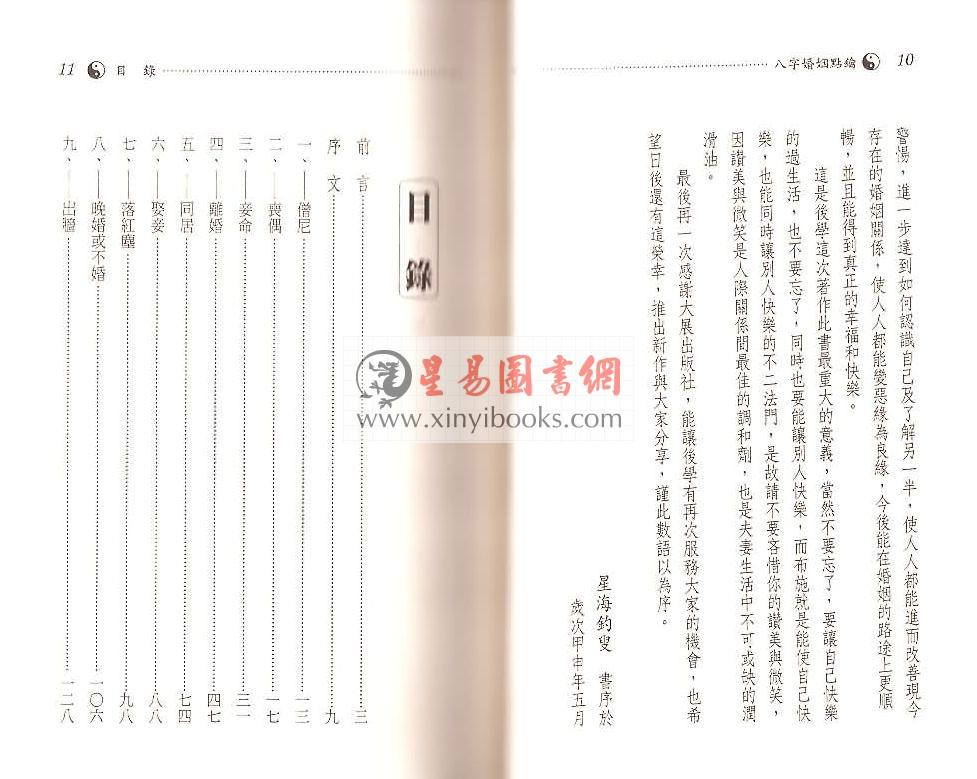 八字婚姻點鑰 10
警惕，進一步達到如何認識自己及了解另一半，使人人都能進而改善現今
存在的婚姻關係，使人人都能變惡緣為良緣，今後能在婚姻的路途上更順
暢，並且能得到真正的幸福和快樂。
這是後學這次著作此書最重大的意義，當然不要忘了，要讓自己快樂
的過生活，也不要忘了，同時也要能讓別人快樂，而布施就是能使自己快
樂，也能同時讓別人快樂的不二法門，是故請不要吝惜你的讚美與微笑，
因讚美與微笑是人際關係間最佳的調和劑，也是夫妻生活中不可或缺的潤
滑油。
最後再一次感謝大展出版社，能讓後學有再次服務大家的機會，也希
望日後還有這榮幸，推出新作與大家分享，謹此數語以為序。
星海釣叟 書序於
歲次甲申年五月
11 目 錄
目錄
前 言 三
序 文 九
一、——僧尼 一三
二、——喪偶 一七
三、——妾命 三一
四、——離婚 四七
五、——同居 七四
六、——娶妾 八八
七、——落紅塵 九八
八、——晚婚或不婚 一〇六
九、——出牆 一二八
星易圖書網
www.xinyibooks.com